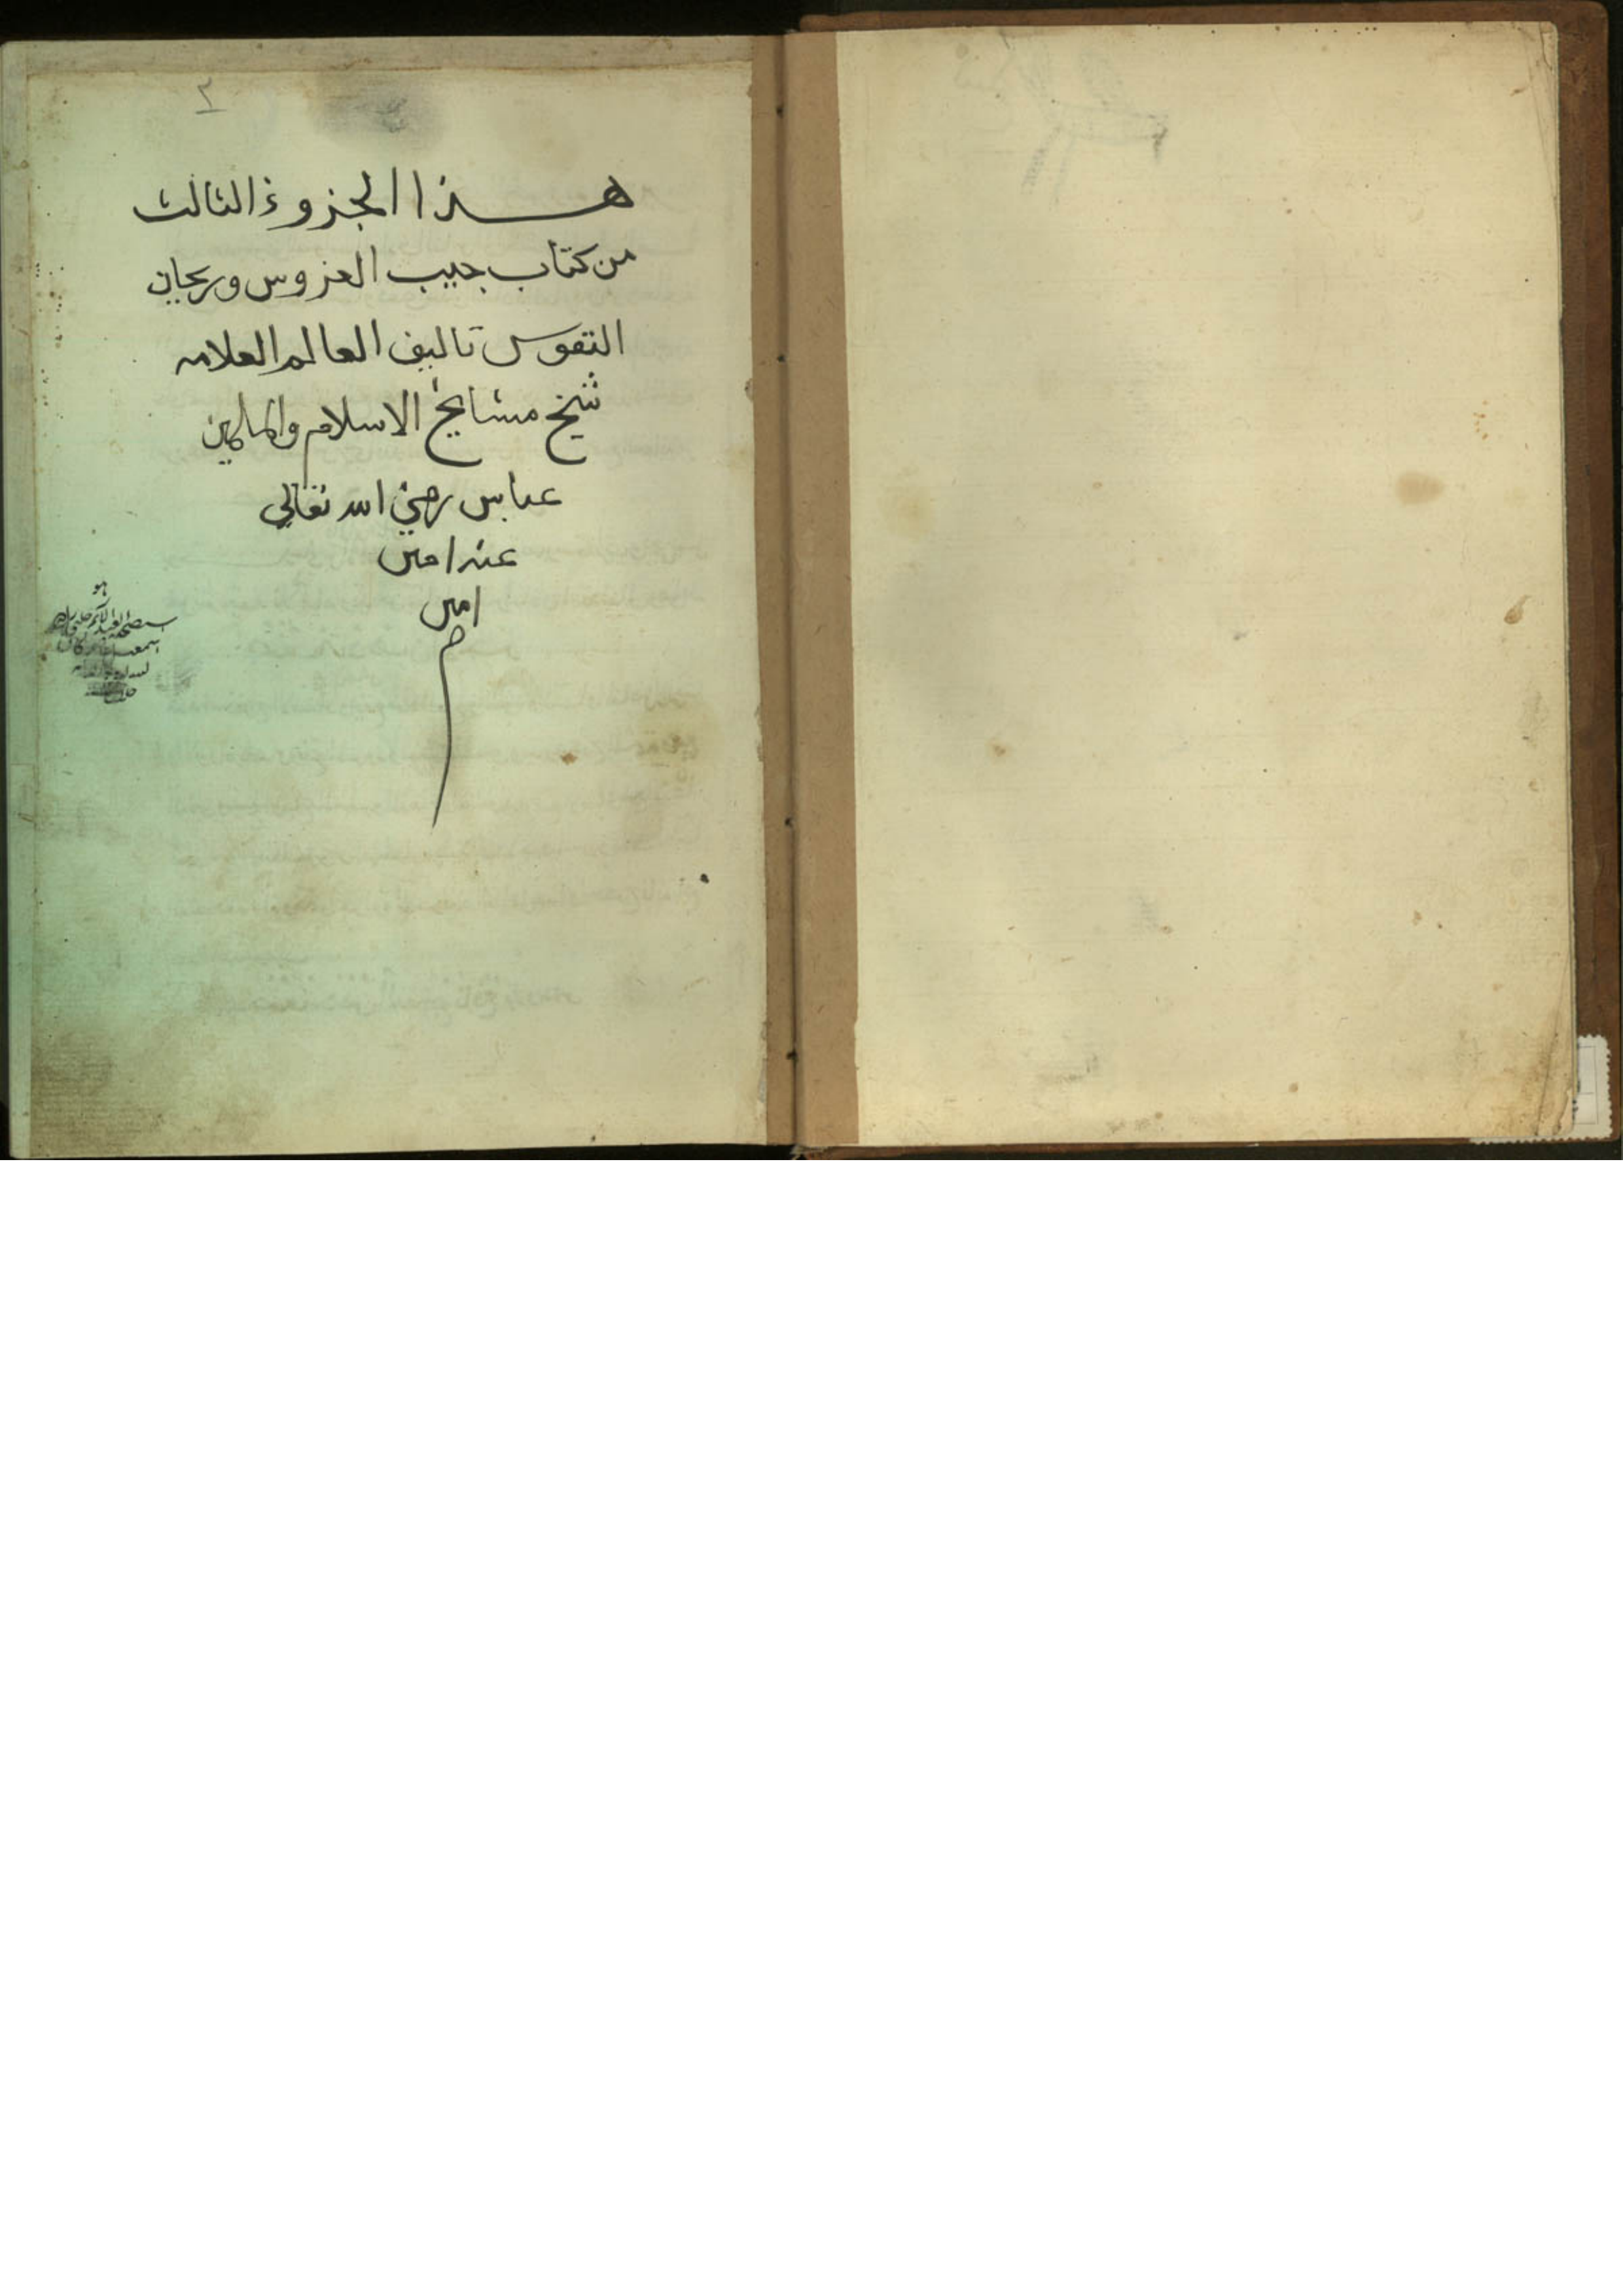 ٣
هذا الجزوء الثالث
من كتاب جيب العزوس وريحان
التقوس تاليف العالم العلامه
شيخ مشايخ الاسلام والمسلمين
عباس رضي الله تعالي
عنه امين
امين
م
هو